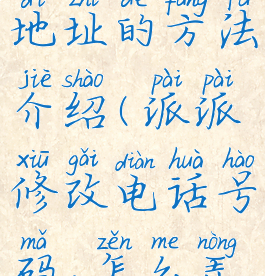 dì zhǐ de fāng fǎ
地址的方法
jiè shào pài pài
介绍(派派
xiū gǎi diàn huà hào
修改电话号
mǎ zěn me nòng
码,怎么弄